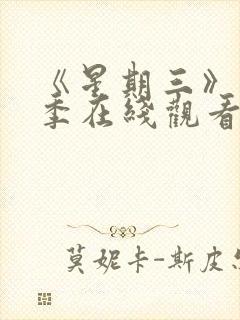 《星期三》
季在綫觀看
莫妮卡-斯皮